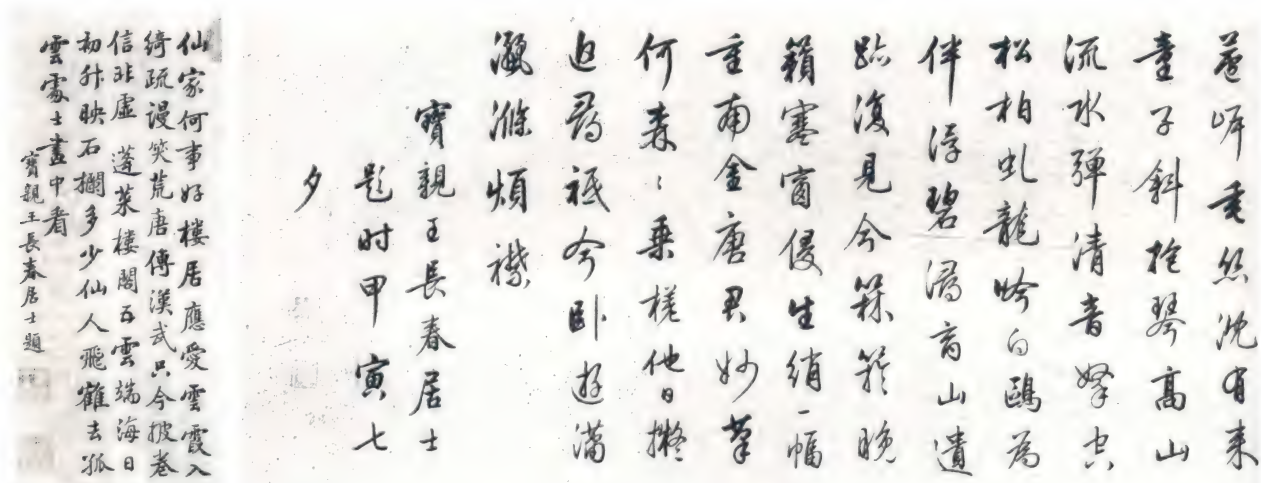 岸垂絲沈有来
童子斜抱琴高山
流水彈清音拏空
松柏虬龍吟白鷗為
伴浮碧潯商山遺
跡復見今晚
籟寒窗侵生綃一幅
重南金唐君妙筆
何森〻乘槎他日擬
追尋祗今卧遊瀟
灑滌煩襟
寶親王長春居士
題时甲寅七
夕
仙家何事好樓居應愛雲霞入
綺疏漫笑荒唐傳漢武只今披卷
信非虛 蓬萊樓閣五雲端海日
初升映石欄多少仙人飛鶴去孤
雲處士畫中看
寶親王長春居士題